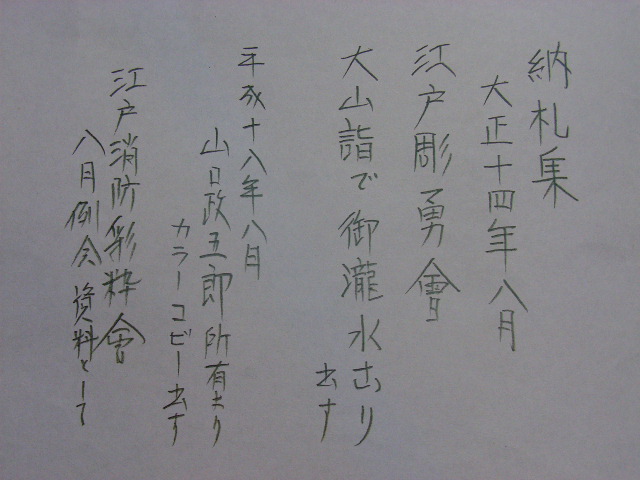 納札集
大正十四年八月
江戸彫勇會
大山詣で御瀧水こり
出す
平成十八年八月
山口政五郎所有より
カラーコピー出す
江戸消防彩粋会
八月例会資料として